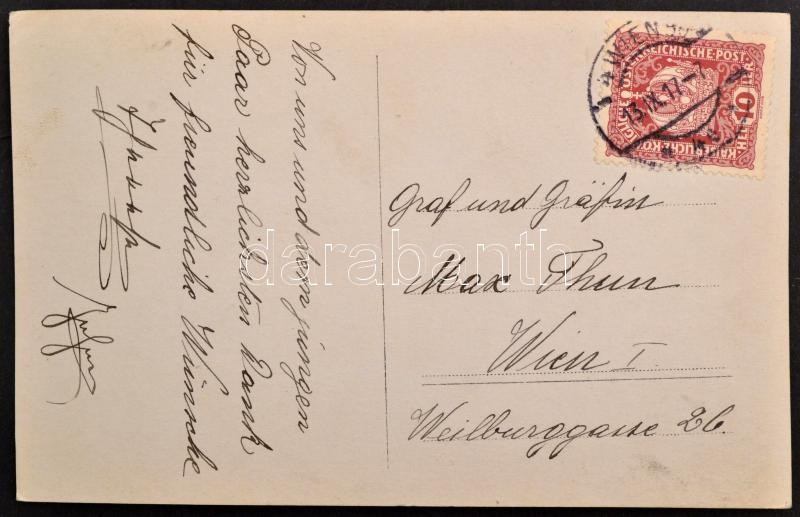 Von uns und dem jungen
Paar herzlichsten Dank
für freundliche Wünsche
Graf und Gräfin
Max Thun
Wien I
Weilburggasse 26.
WIEN
13.IX.17-7
KAISERLICHE KÖNIGLICHE ÖSTERREICHISCHE POST
10
HELLER
darabanth